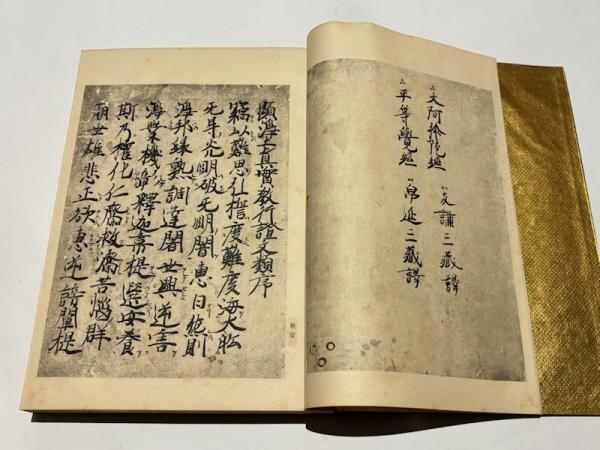 大阿弥陀経 支謙三藏譯
平等覺経 帛延三藏譯
顯淨土真實教行證文類序
竊以難思弘擔度難度海大舩
无㝵光明破无明闇惠日然則
淨邦縁熟調達闍世興逆害
淨業機彰釋迦韋提選安養
斯乃權化仁齊救濟苦惱群
萌世雄悲正欲惠逆謗闡提